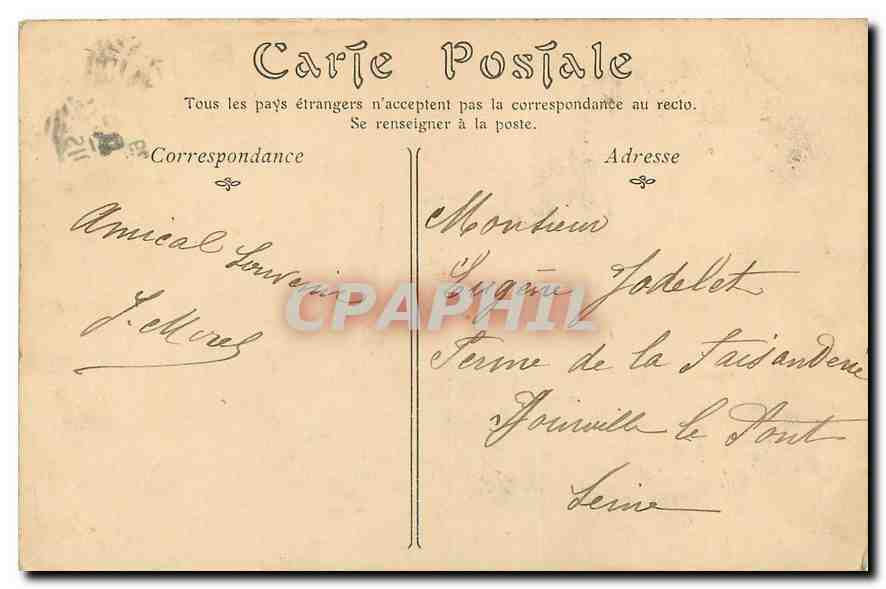 Carte Postale
Tous les pays étrangers n'acceptent pas la correspondance au recto.
Se renseigner à la poste.
Correspondance
Amical Souvenir
J. Morel
Adresse
Monsieur
Eugène Jodelet
Ferme de la Faisanderie
Joinville le Pont
Seine
CPAPHIL